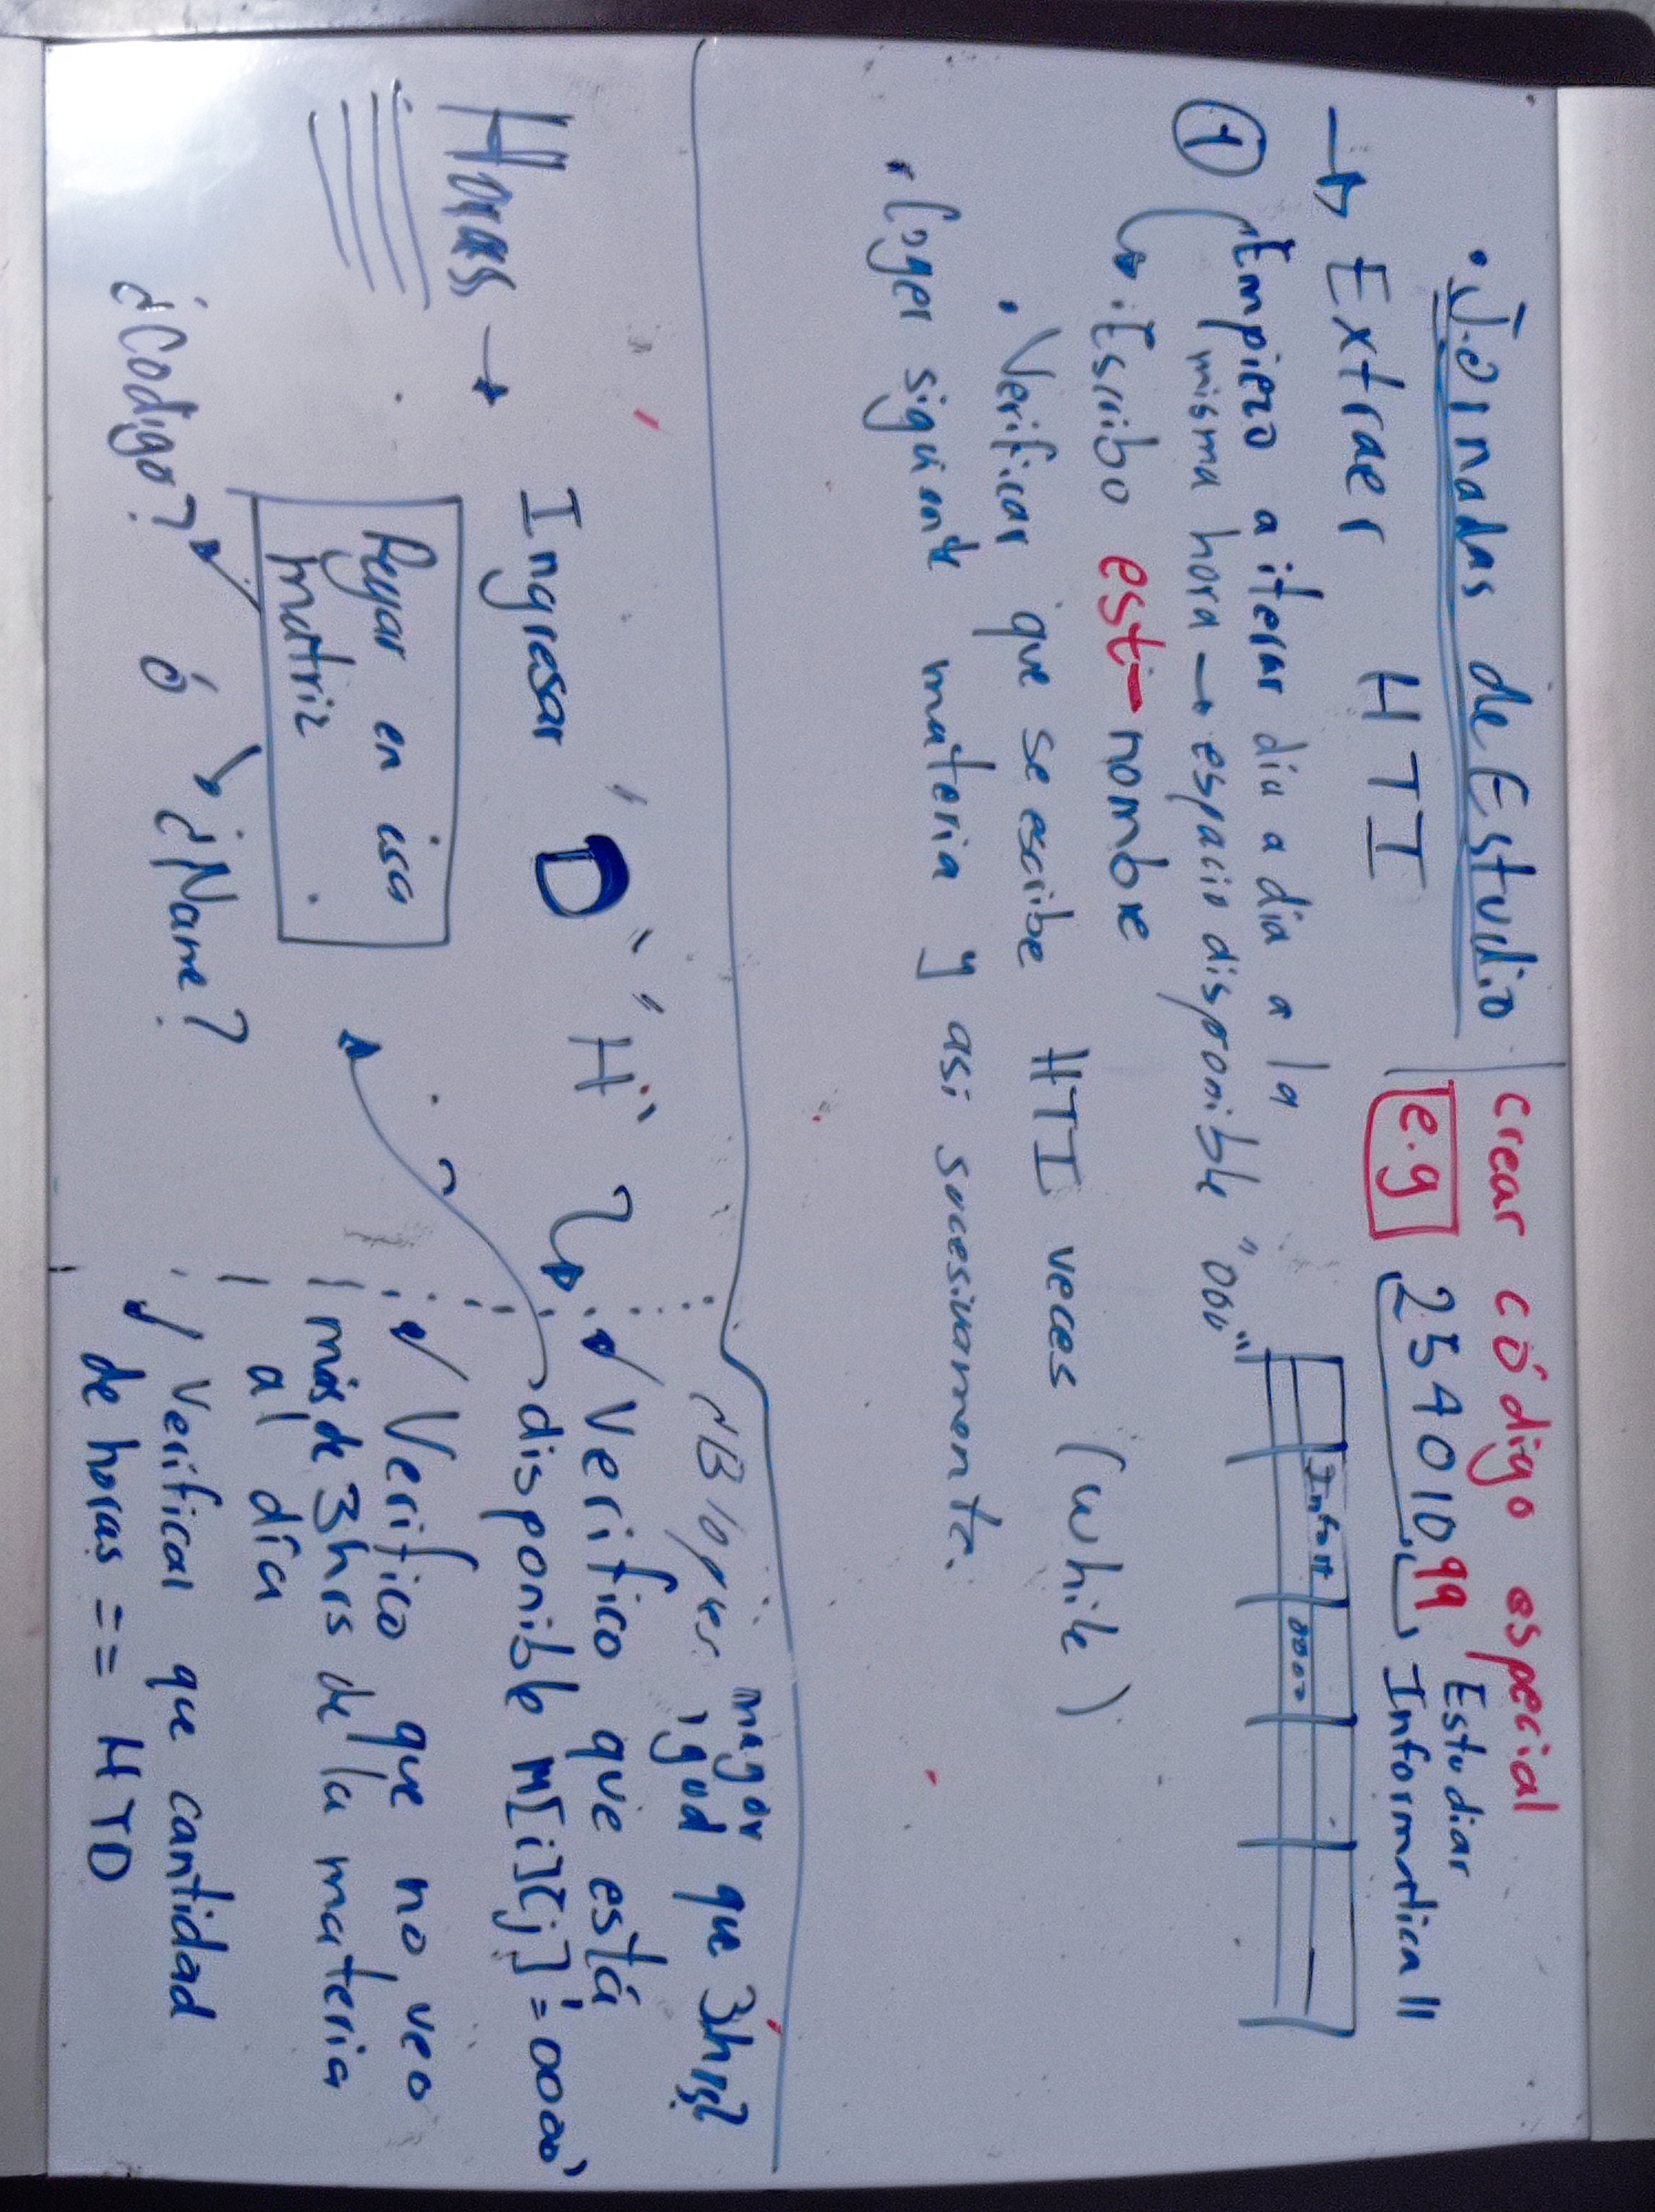 · Jornadas de Estudio
→ Extraer HTI
① Empiezo a iterar día a dia a la
misma hora → espacio disponible "000"
· Escribo est-nombre
· Verificar que se escribe HTI veces (while)
· Coger siguiente materia y asi sucesivamente.
crear código especial
e.g 25401099 Estudiar
Informatica II
Infor II
0000
Horas → Ingresar "D" "H"
Pegar en esa
matriz
¿Codigo? ó ¿Name?
¿Bloques mayor
igual que 3hrs?
✓ Verifico que está
disponible M[i][j] != 0000'
✓ Verifico que no veo
más de 3hrs de la materia
al día
✓ Verificar que cantidad
de horas == HTD